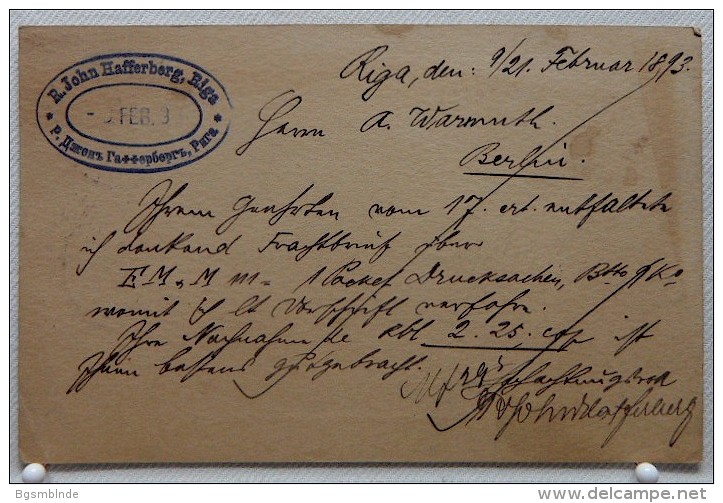 R. John Hafferberg, Riga
FEB. 9
Р. Джонъ Гаффербергъ, Рига.
Riga, den: 9/21. Februar 1893.
Herrn A. Warmuth.
Berlin.
Ihrem Geehrten vom 17. crt. entfaltete
ich dankend Frachtbrief über
1 Packet Drucksachen, Btto Ko
womit ich lt Vorschrift verfahre.
Ihre Nachnahme de Rbl 2.25. cop ist
Ihnen bestens gutgebracht.
Achtungsvoll
R John Hafferberg
Bgsmblnde
delcampe.net